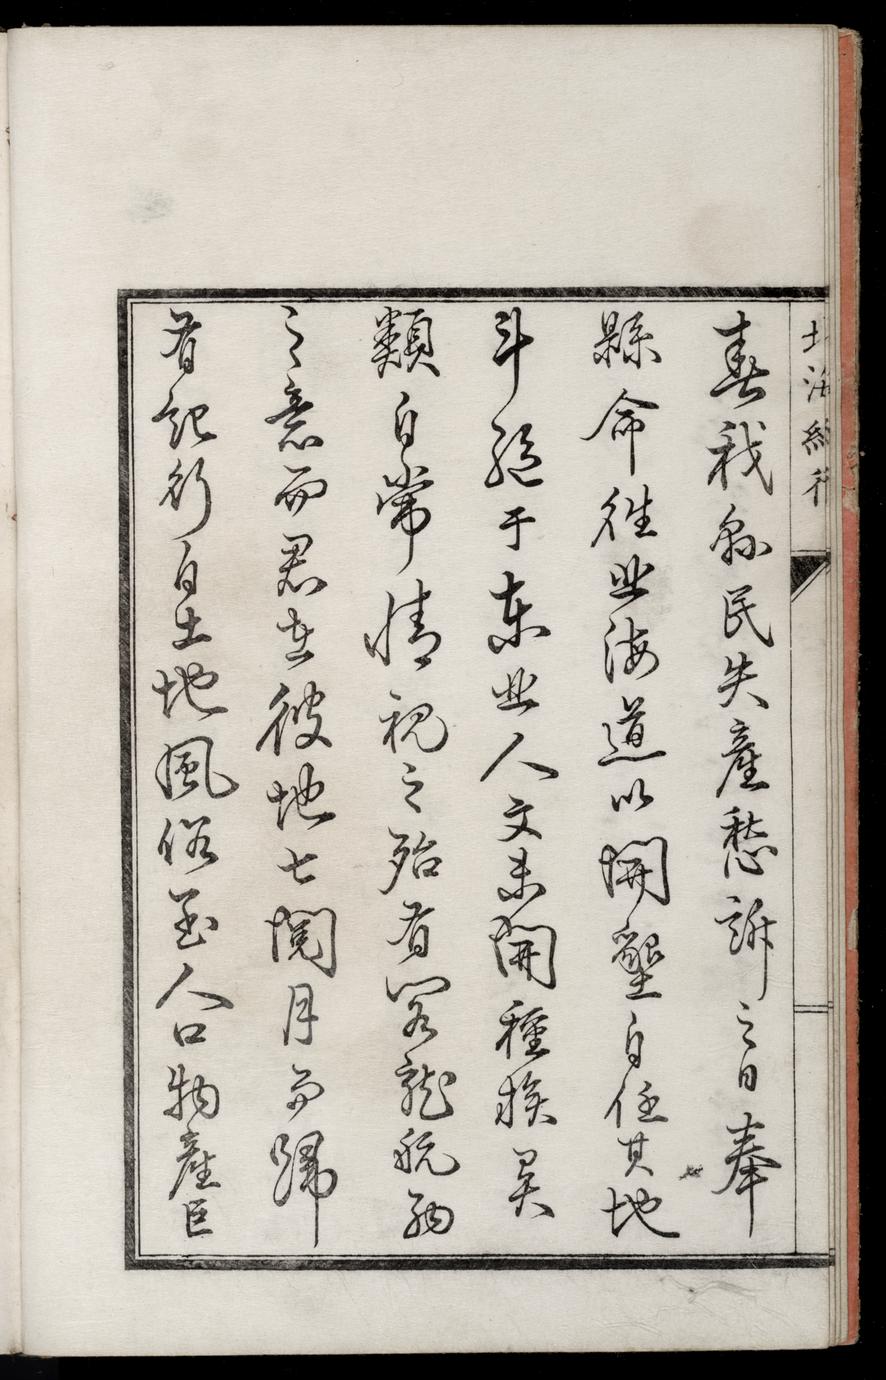 北海紀行
春我縣民失産愁訴之日奉
縣命往北海道以開墾自任其地
斗絶于東北人文未開種族異
類自常情視之殆有器龍瓶弱
之意而君在彼地七閲月而歸
有記行自土地風俗至人口物產巨